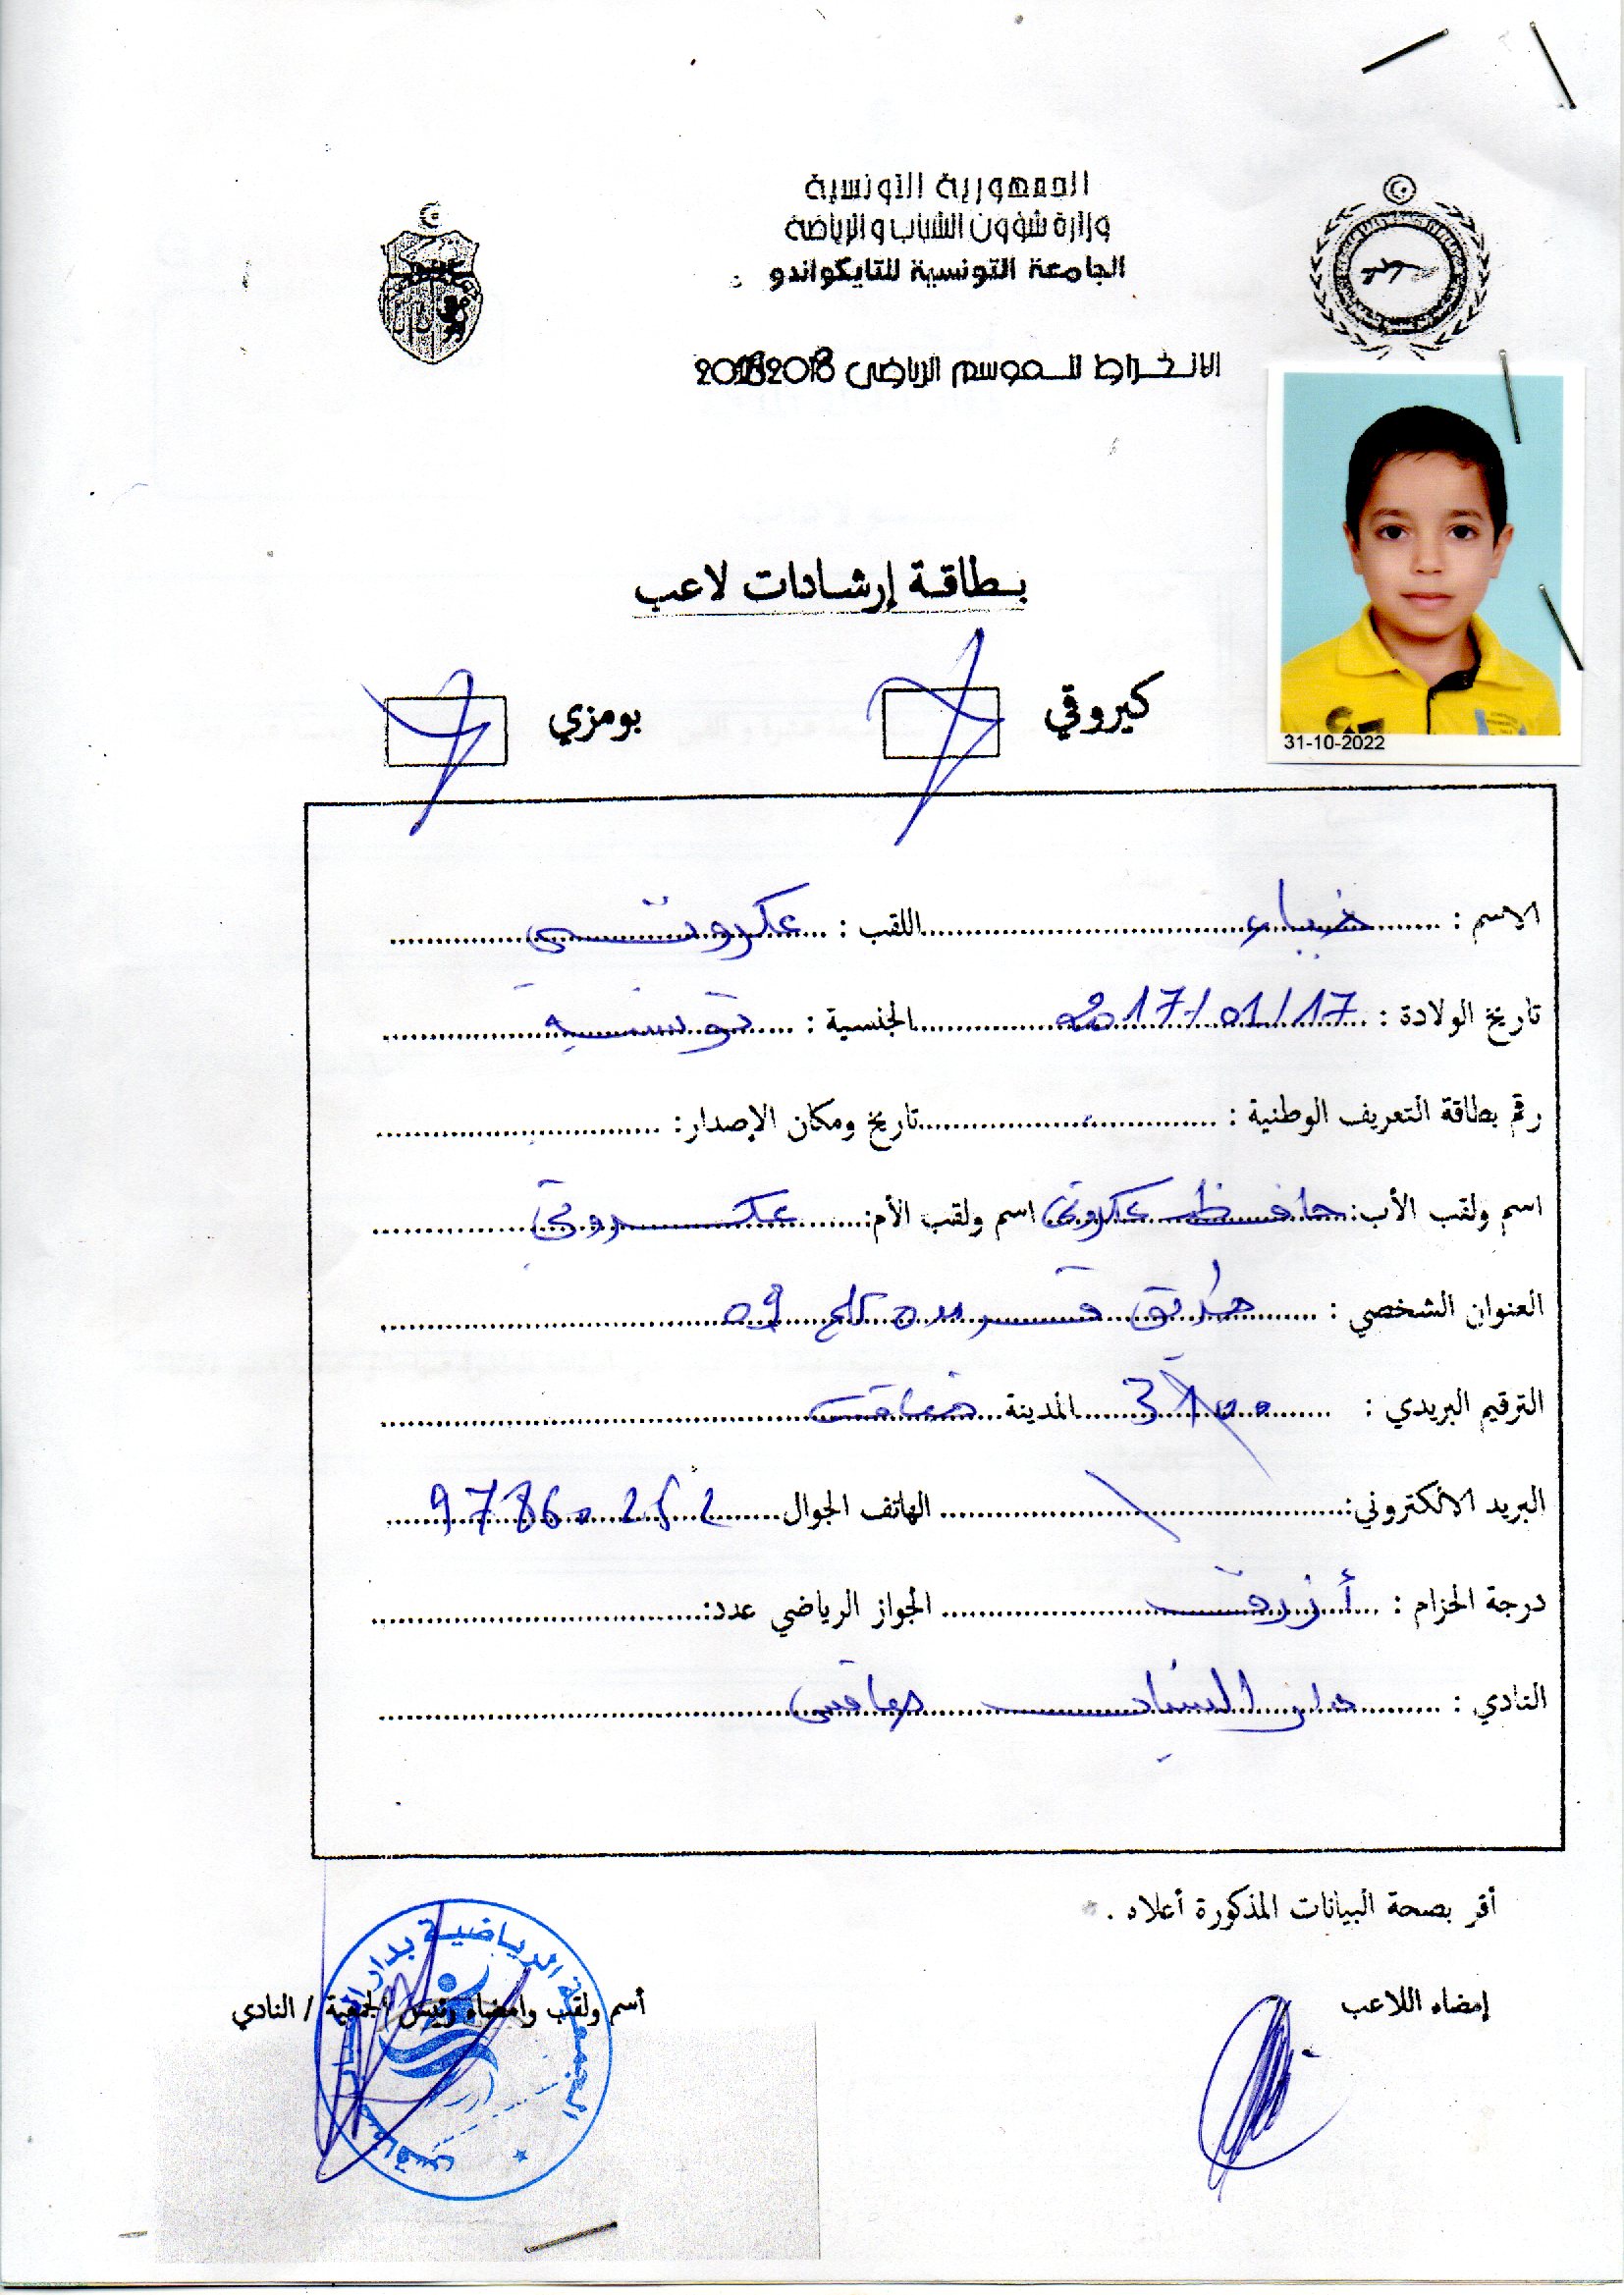 الجمهورية التونسية
وزارة شؤون الشباب والرياضة
الجامعة التونسية للتايكواندو
الانخراط للموسم الرياضي
31-10-2022
بطاقة إرشادات لاعب
كيروقي بومزي
الاسم : ضياء اللقب : عكروتي
تاريخ الولادة : 2017/01/17 الجنسية : تونسية
رقم بطاقة التعريف الوطنية : تاريخ ومكان الإصدار:
اسم ولقب الأب: حافظ عكروتي اسم ولقب الأم: عكروتي
العنوان الشخصي : طريق كلم 09
الترقيم البريدي : المدينة صفاقس
البريد الالكتروني: الهاتف الجوال
درجة الحزام : أزرق الجواز الرياضي عدد:
النادي : دار الشباب صفاقس
أقر بصحة البيانات المذكورة أعلاه .
إمضاء اللاعب
أسم ولقب وامضاء رئيس الجمعية / النادي
الجمعية الرياضية بدار